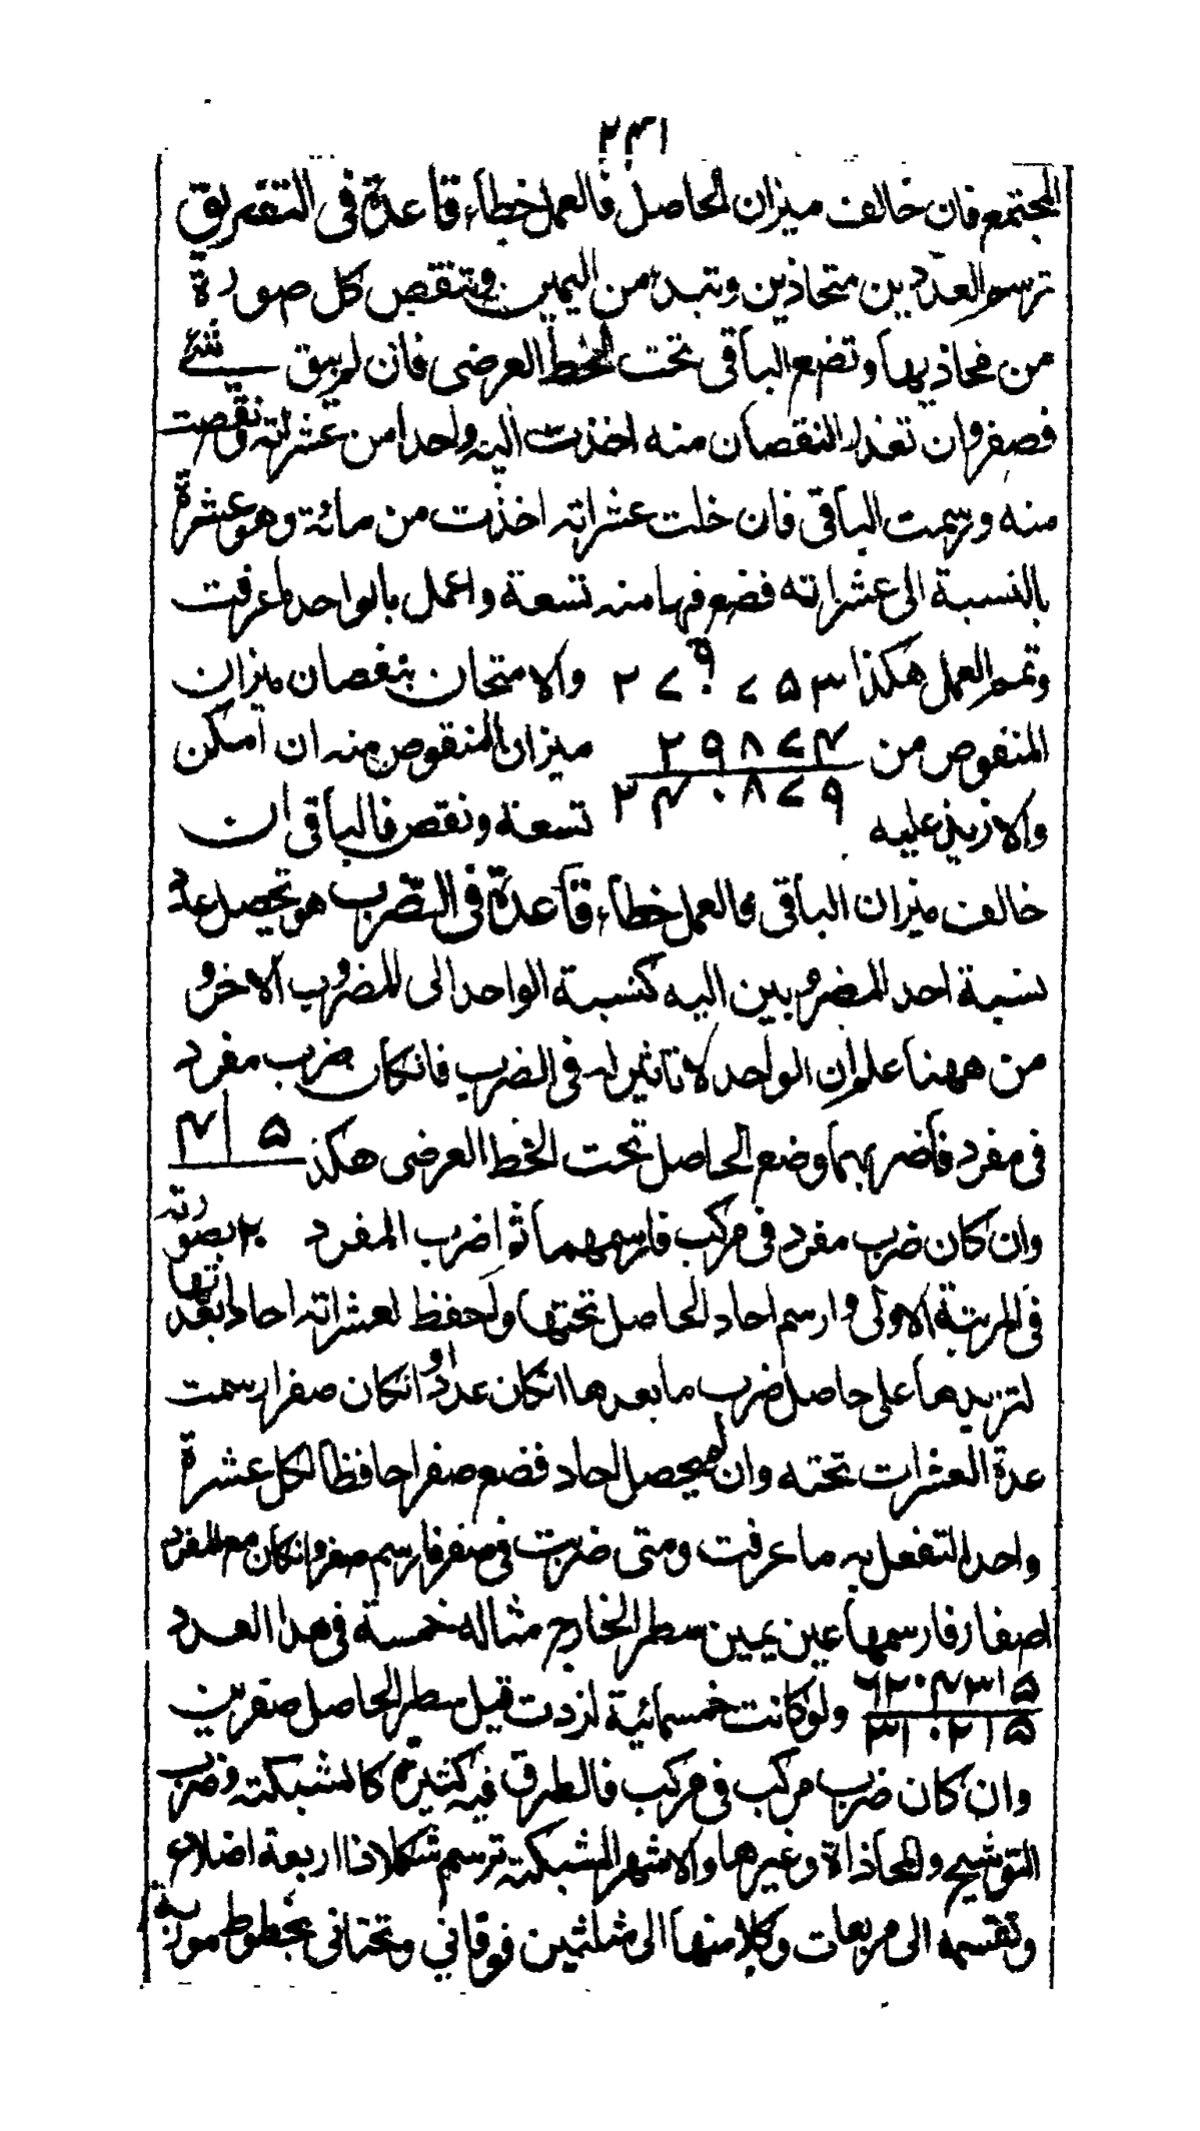 ٢٤١
المجتمع فان خالف ميزان الحاصل فالعمل خطاء قاعدة فى التفريق
ترسم العددين متحاذيين وتبدء من اليمين وتنقص كل صورة
من محاذيها وتضع الباقى تحت الخط العرضى فان لم يبق شئ
فصفر وان تعذر النقصان منه اخذت اليه واحدا من عشراته ونقصت
منه ورسمت الباقى فان خلت عشراته اخذت من مائة وهو عشرة
بالنسبة الى عشراته فضع فيها منه تسعة واعمل بالواحد ما عرفت
وتمم العمل هكذا ٢٧٠٧٥٣ ٩ والامتحان بنقصان ميزان
المنقوص من ٢٩٨٧٤ ميزان المنقوص منه ان امكن
والا زيد عليه ٢٤٠٨٧٩ تسعة ونقص فالباقى ان
خالف ميزان الباقى فالعمل خطاء قاعدة فى الضرب هو تحصيل عدد
نسبة احد المضروبين اليه كنسبة الواحد الى المضروب الاخر و
من ههنا علم ان الواحد لا تاثير له فى الضرب فانكان ضرب مفرد
فى مفرد فاضربهما وضع الحاصل تحت الخط العرضى هكذا ٥ | ٤
وان كان ضرب مفرد فى مركب فارسمهما ثم اضرب المفرد ٢٠ بصورته
فى المرتبة الاولى وارسم احاد الحاصل تحتها واحفظ لعشراته احادا بعدتها
لتزيدها على حاصل ضرب ما بعدها انكان عددا او انكان صفرا رسمت
عدة العشرات تحته وان لم يحصل احاد فضع صفرا حافظا لكل عشرة
واحدا لتفعل به ما عرفت ومتى ضربت فى صفر فارسم صفرا وانكان مع المفرد
اصفار فارسمها عن يمين سطر الخارج مثاله خمسة فى هذا العدد
٦٢٠٤٣ ٥ ولو كانت خمسمائية لزدت قبل سطر الحاصل صفرين
٣١٠٢١٥
وان كان ضرب مركب فى مركب فالطرق فيه كثيرة كالشبكته وضرب
التوشيح والمحاذاة وغيرها والاشهر الشبكته ترسم شكلا ذا اربعة اضلاع
وتقسمه الى مربعات وكلا منها الى مثلثين فوقانى وتحتانى بخطوط موربة